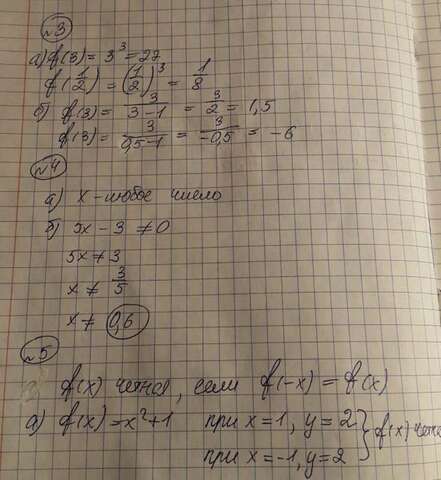 №3
а) f(3) = 3³ = 27
f(1/2) = (1/2)³ = 1/8
б) f(3) = 3/(3-1) = 3/2 = 1,5
f(3) = 3/(0,5-1) = 3/(-0,5) = -6
№4
а) x - любое число
б) 5x - 3 ≠ 0
5x ≠ 3
x ≠ 3/5
x ≠ 0,6
№5
f(x) четная, если f(-x) = f(x)
а) f(x) = x²+1 при x = 1, y = 2 } f(x) четна
при x = -1, y = 2